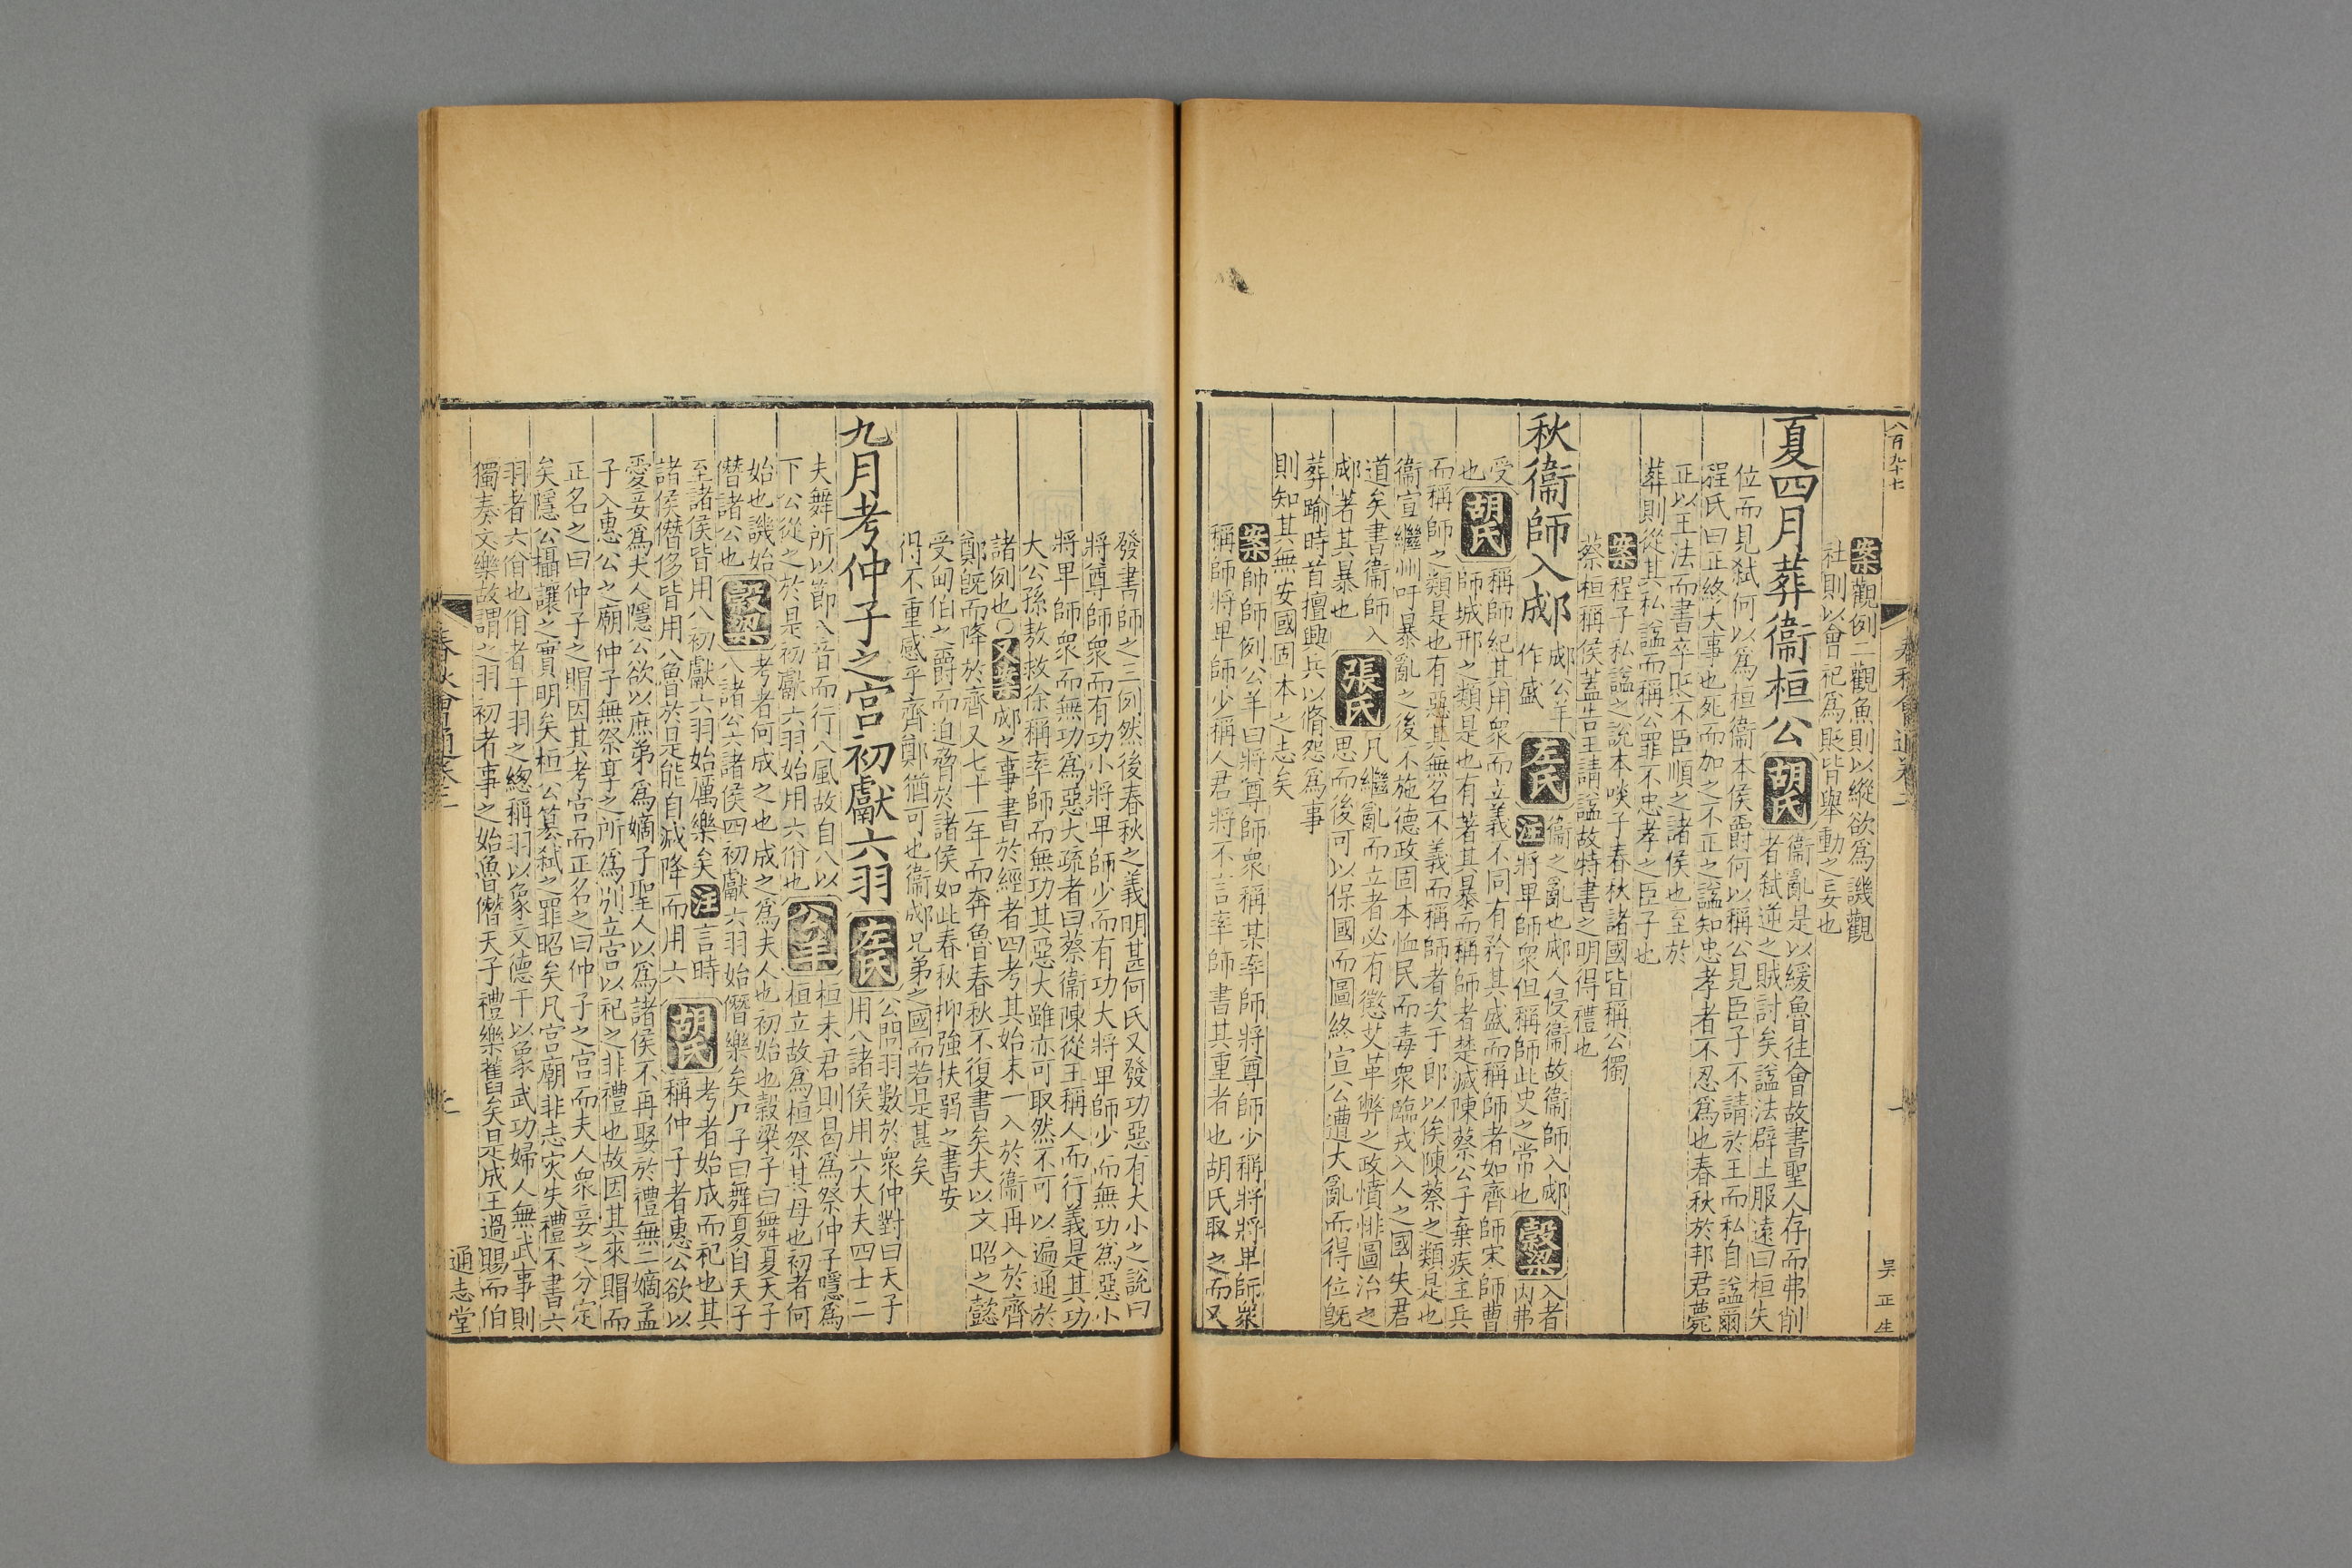 八百九十七
春秋會通卷二
吴正生
案觀例二觀魚則以縱欲爲譏觀
社則以會祀爲貶皆舉動之妄也
夏四月葬衞桓公
胡氏衞亂是以緩魯往會故書聖人存而弗削
者弑逆之賊討矣諡法辟土服遠曰桓失
位而見弑何以爲桓衞本侯爵何以稱公見臣子不請於王而私自諡爾
程氏曰正終大事也死而加之不正之諡知忠孝者不忍爲也春秋於邦君薨
正以王法而書卒
不臣順之諸侯也至於
葬則從其私諡而稱公罪不忠孝之臣子也
案程子私諡之說本啖子春秋諸國皆稱公獨
蔡桓稱侯蓋告王請諡故特書之明得禮也
秋衞師入郕
郕公羊
作盛
左氏衞之亂也郕人侵衞故衞師入郕
注將卑師衆但稱師此史之常也
穀梁入者
内弗
受
也
胡氏稱師紀其用衆而立義不同有矜其盛而稱師者如齊師宋師曹
師城邢之類是也有著其暴而稱師者楚滅陳蔡公子棄疾主兵
而稱師之類是也有惡其無名不義而稱師者次于郎以俟陳蔡之類是也
衞宣繼州吁暴亂之後不施德政固本恤民而毒衆臨戎入人之國失君
道矣書衞師入
郕著其暴也
張氏凡繼亂而立者必有懲艾革弊之政憤悱圖治之
思而後可以保國而圖終宣公遭大亂而得位旣
葬踰時首擅興兵以脩怨爲事
則知其無安國固本之志矣
案帥師例公羊曰將尊師衆稱某率師將尊師少稱將將卑師衆
稱師將卑師少稱人君將不言率師書其重者也胡氏取之而又
發書師之三例然後春秋之義明甚何氏又發功惡有大小之說曰
將尊師衆而有功小將卑師少而有功大將卑師少而無功爲惡小
將卑師衆而無功爲惡大疏者曰蔡衞陳從王稱人而行義是其功
大公孫敖救徐稱率師而無功其惡大雖亦可取然不可以遍通於
諸例也○又案郕之事書於經者四考其始末一入於衞再入於齊
鄭旣而降於齊又七十一年而奔魯春秋不復書矣夫以文昭之懿
受甸伯之爵而迫脅於諸侯如此春秋抑強扶弱之書安
得不重感乎齊鄭猶可也衞郕兄弟之國而若是甚矣
九月考仲子之宮初獻六羽
左氏公問羽數於衆仲對曰天子
用八諸侯用六大夫四士二
夫舞所以節八音而行八風故自八以
下公從之於是初獻六羽始用六佾也
公羊桓未君則曷爲祭仲子隱爲
桓立故爲桓祭其母也初者何
始也譏始
僭諸公也
穀梁考者何成之也成之爲夫人也初始也穀梁子曰舞夏天子
八諸公六諸侯四初獻六羽始僭樂矣尸子曰舞夏自天子
至諸侯皆用八初獻六羽始厲樂矣注言時
諸侯僭侈皆用八魯於是能自減降而用六
胡氏考者始成而祀也其
稱仲子者惠公欲以
愛妾爲夫人隱公欲以庶弟爲嫡子聖人以爲諸侯不再娶於禮無二嫡孟
子入惠公之廟仲子無祭享之所爲別立宮以祀之非禮也故因其來賵而
正名之曰仲子之賵因其考宮而正名之曰仲子之宮而夫人衆妾之分定
矣隱公攝讓之實明矣桓公簒弑之罪昭矣凡宮廟非志灾失禮不書六
羽者六佾也佾者干羽之緫稱羽以象文德干以象武功婦人無武事則
獨奏文樂故謂之羽初者事之始魯僭天子禮樂舊矣是成王過賜而伯
春秋會通卷二
通志堂